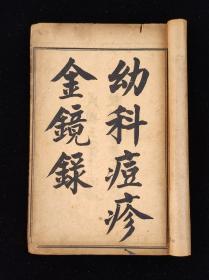 幼科痘疹
金鏡錄